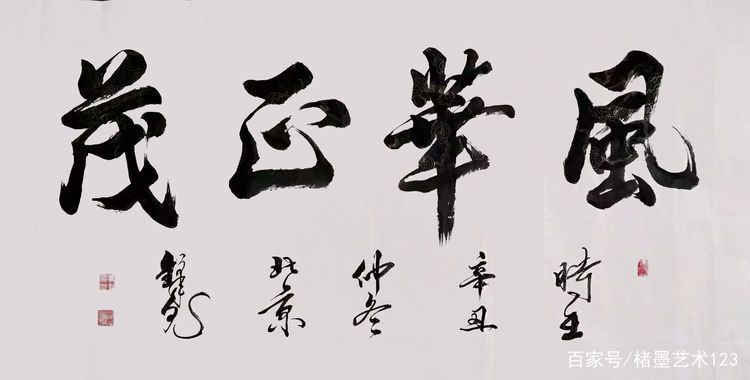 風華正茂
時 辛丑 仲冬 北京
百家号/楮墨艺术123